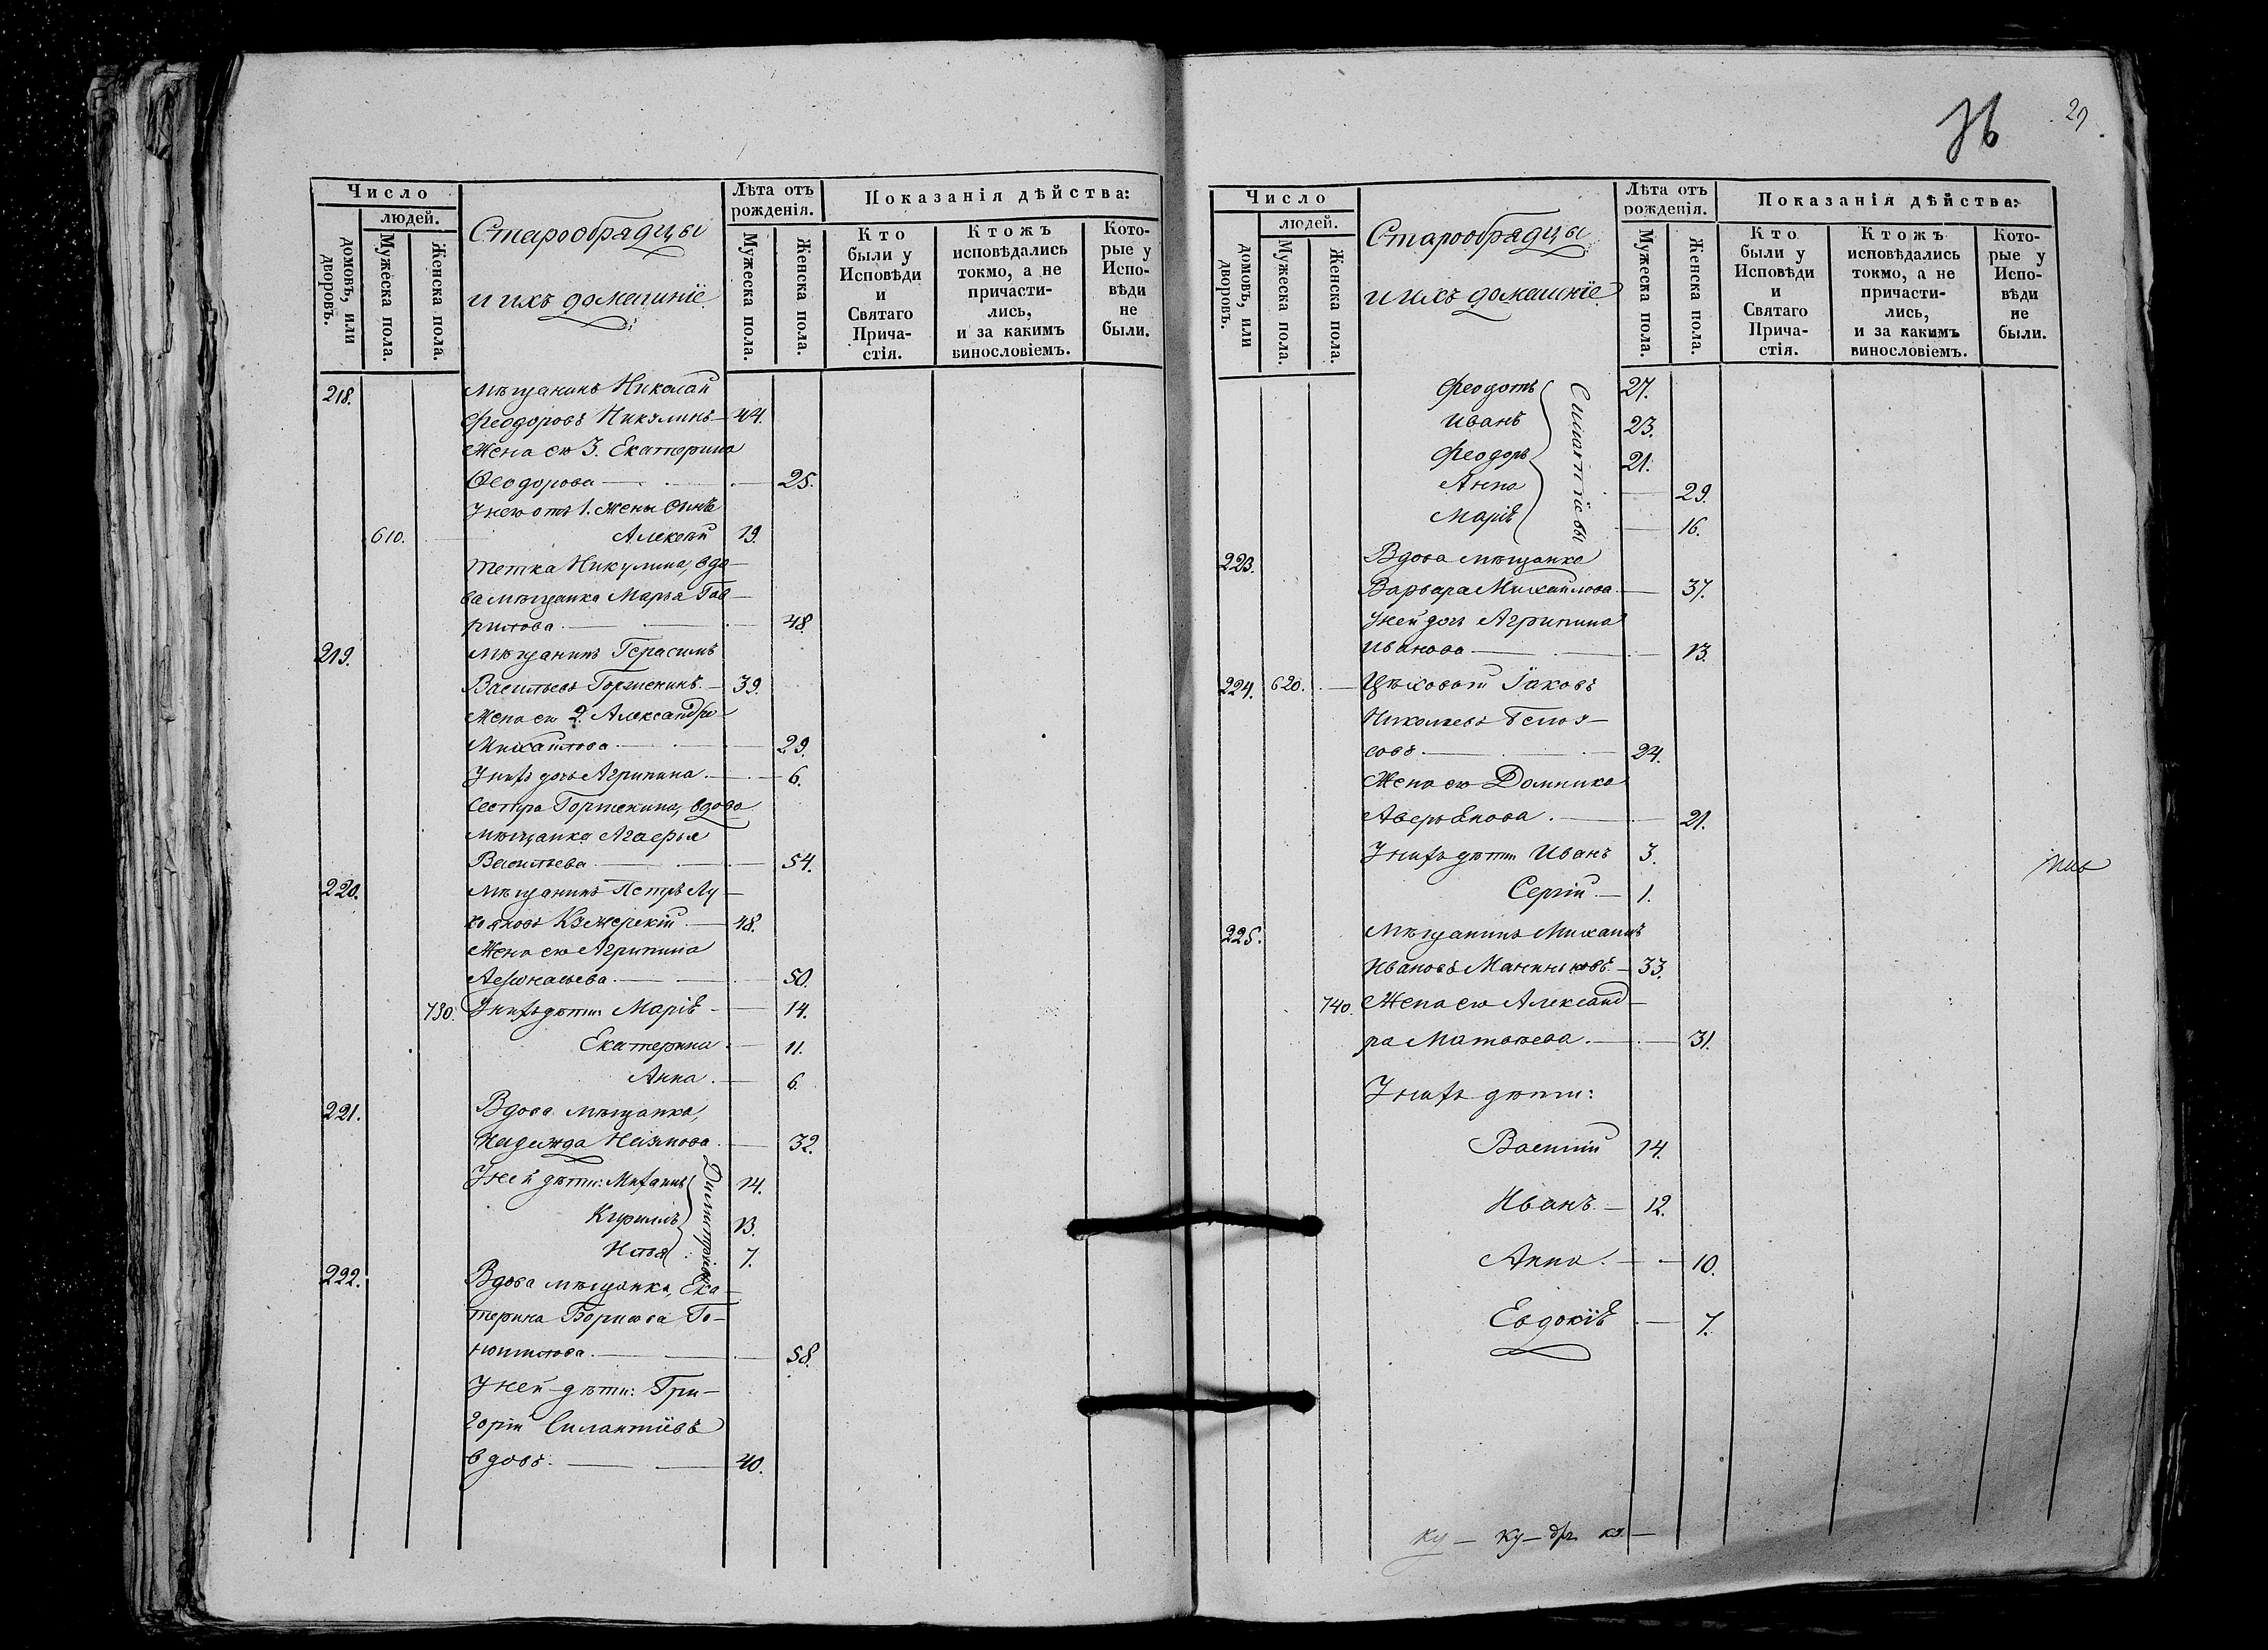 Число
людей.
домовъ, или дворовъ.
Мужеска пола.
Женска пола.
Старообрядцы
и ихъ домашніе
Лѣта отъ
рожденія.
Мужеска пола.
Женска пола.
Показанія дѣйства:
Кто
были у
Исповѣди
и
Святаго
Прича-
стія.
Ктожъ
исповѣдались
токмо, а не
причасти-
лись,
и за какимъ
винословіемъ.
Кото-
рые у
Испо-
вѣди
не
были.
218. Мѣщанинъ Николай
Феодоровъ Никулинъ — 44.
Жена его 3. Екатерина
Феодорова — 25.
У него отъ 1. жены сынъ
610. Алексѣй 19.
Тетка Никулина, вдо-
ва мѣщанка Марья Гав-
рилова — 48.
219. Мѣщанинъ Герасимъ
Васильевъ Горшенинъ — 39.
Жена его 2. Александра
Михайлова — 29.
У нихъ дочь Агрипина — 6.
Сестра Горшенина, вдова
мѣщанка Агафья
Васильева — 54.
220. Мѣщанинъ Петръ Лу-
кояновъ — 48.
Жена его Агрипина
50.
730. У нихъ дѣти: Маріѣ — 14.
Екатерина — 11.
Анна — 6.
221. Вдова мѣщанка,
Надежда — 32.
У ней дѣти: Михаилъ 14.
Кириллъ 13.
Илья 7.
Димитріевы
222. Вдова мѣщанка, Ека-
терина Борисова
58.
У ней дѣти: Гри-
горій Силантіевъ
вдовъ — 40.
29
Число
людей.
домовъ, или дворовъ.
Мужеска пола.
Женска пола.
Старообрядцы
и ихъ домашніе
Лѣта отъ
рожденія.
Мужеска пола.
Женска пола.
Показанія дѣйства:
Кто
были у
Исповѣди
и
Святаго
Прича-
стія.
Ктожъ
исповѣдались
токмо, а не
причасти-
лись,
и за какимъ
винословіемъ.
Кото-
рые у
Испо-
вѣди
не
были.
Феодотъ 27.
Иванъ 23.
Феодоръ 21.
Анна — 29.
Маріѣ — 16.
Силантіевы
223. Вдова мѣщанка
Варвара Михайлова — 37.
У ней дочь Агрипина
Иванова — 13.
224. 620. Цѣховый Іаковъ
Николаевъ Белоя-
совъ — 24.
Жена его Домника
Аверьянова — 21.
У нихъ дѣти Иванъ 3.
Сергій — 1.
225. Мѣщанинъ Михаилъ
Ивановъ — 33.
740. Жена его Александ-
ра Матвѣева — 31.
У нихъ дѣти:
Василій 14.
Иванъ — 12.
Анна — 10.
Евдокіѣ — 7.